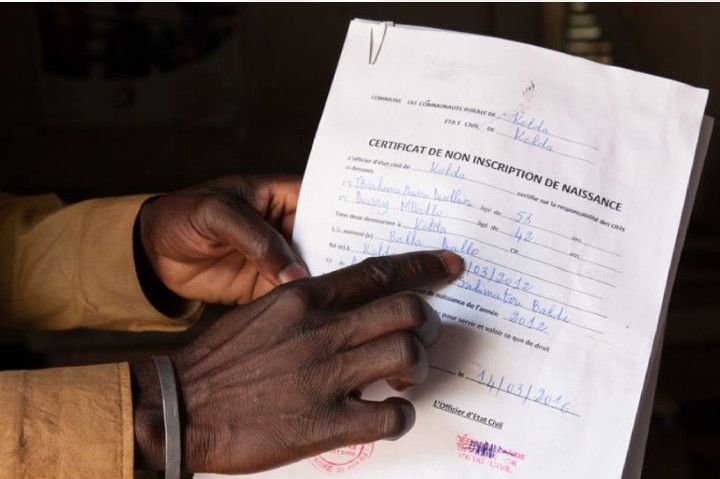 COMMUNE OU COMMUNAUTE RURALE DE Kolda
ETAT CIVIL DE Kolda
CERTIFICAT DE NON INSCRIPTION DE NAISSANCE
L'officier d'état civil de Kolda certifie sur la responsabilité des cités
ci-dessous
âgé de 58 ans
Dussy MBallo âgé de 42 ans
Tous deux demeurant à Kolda CR
nommé (e) Ballo
Né (e) à Kold /03/2012
Balde
de naissance de l'année 2012
pour servir et valoir ce que de droit
le 14/03/2016
L'Officier d'Etat Civil
ETAT CIVIL